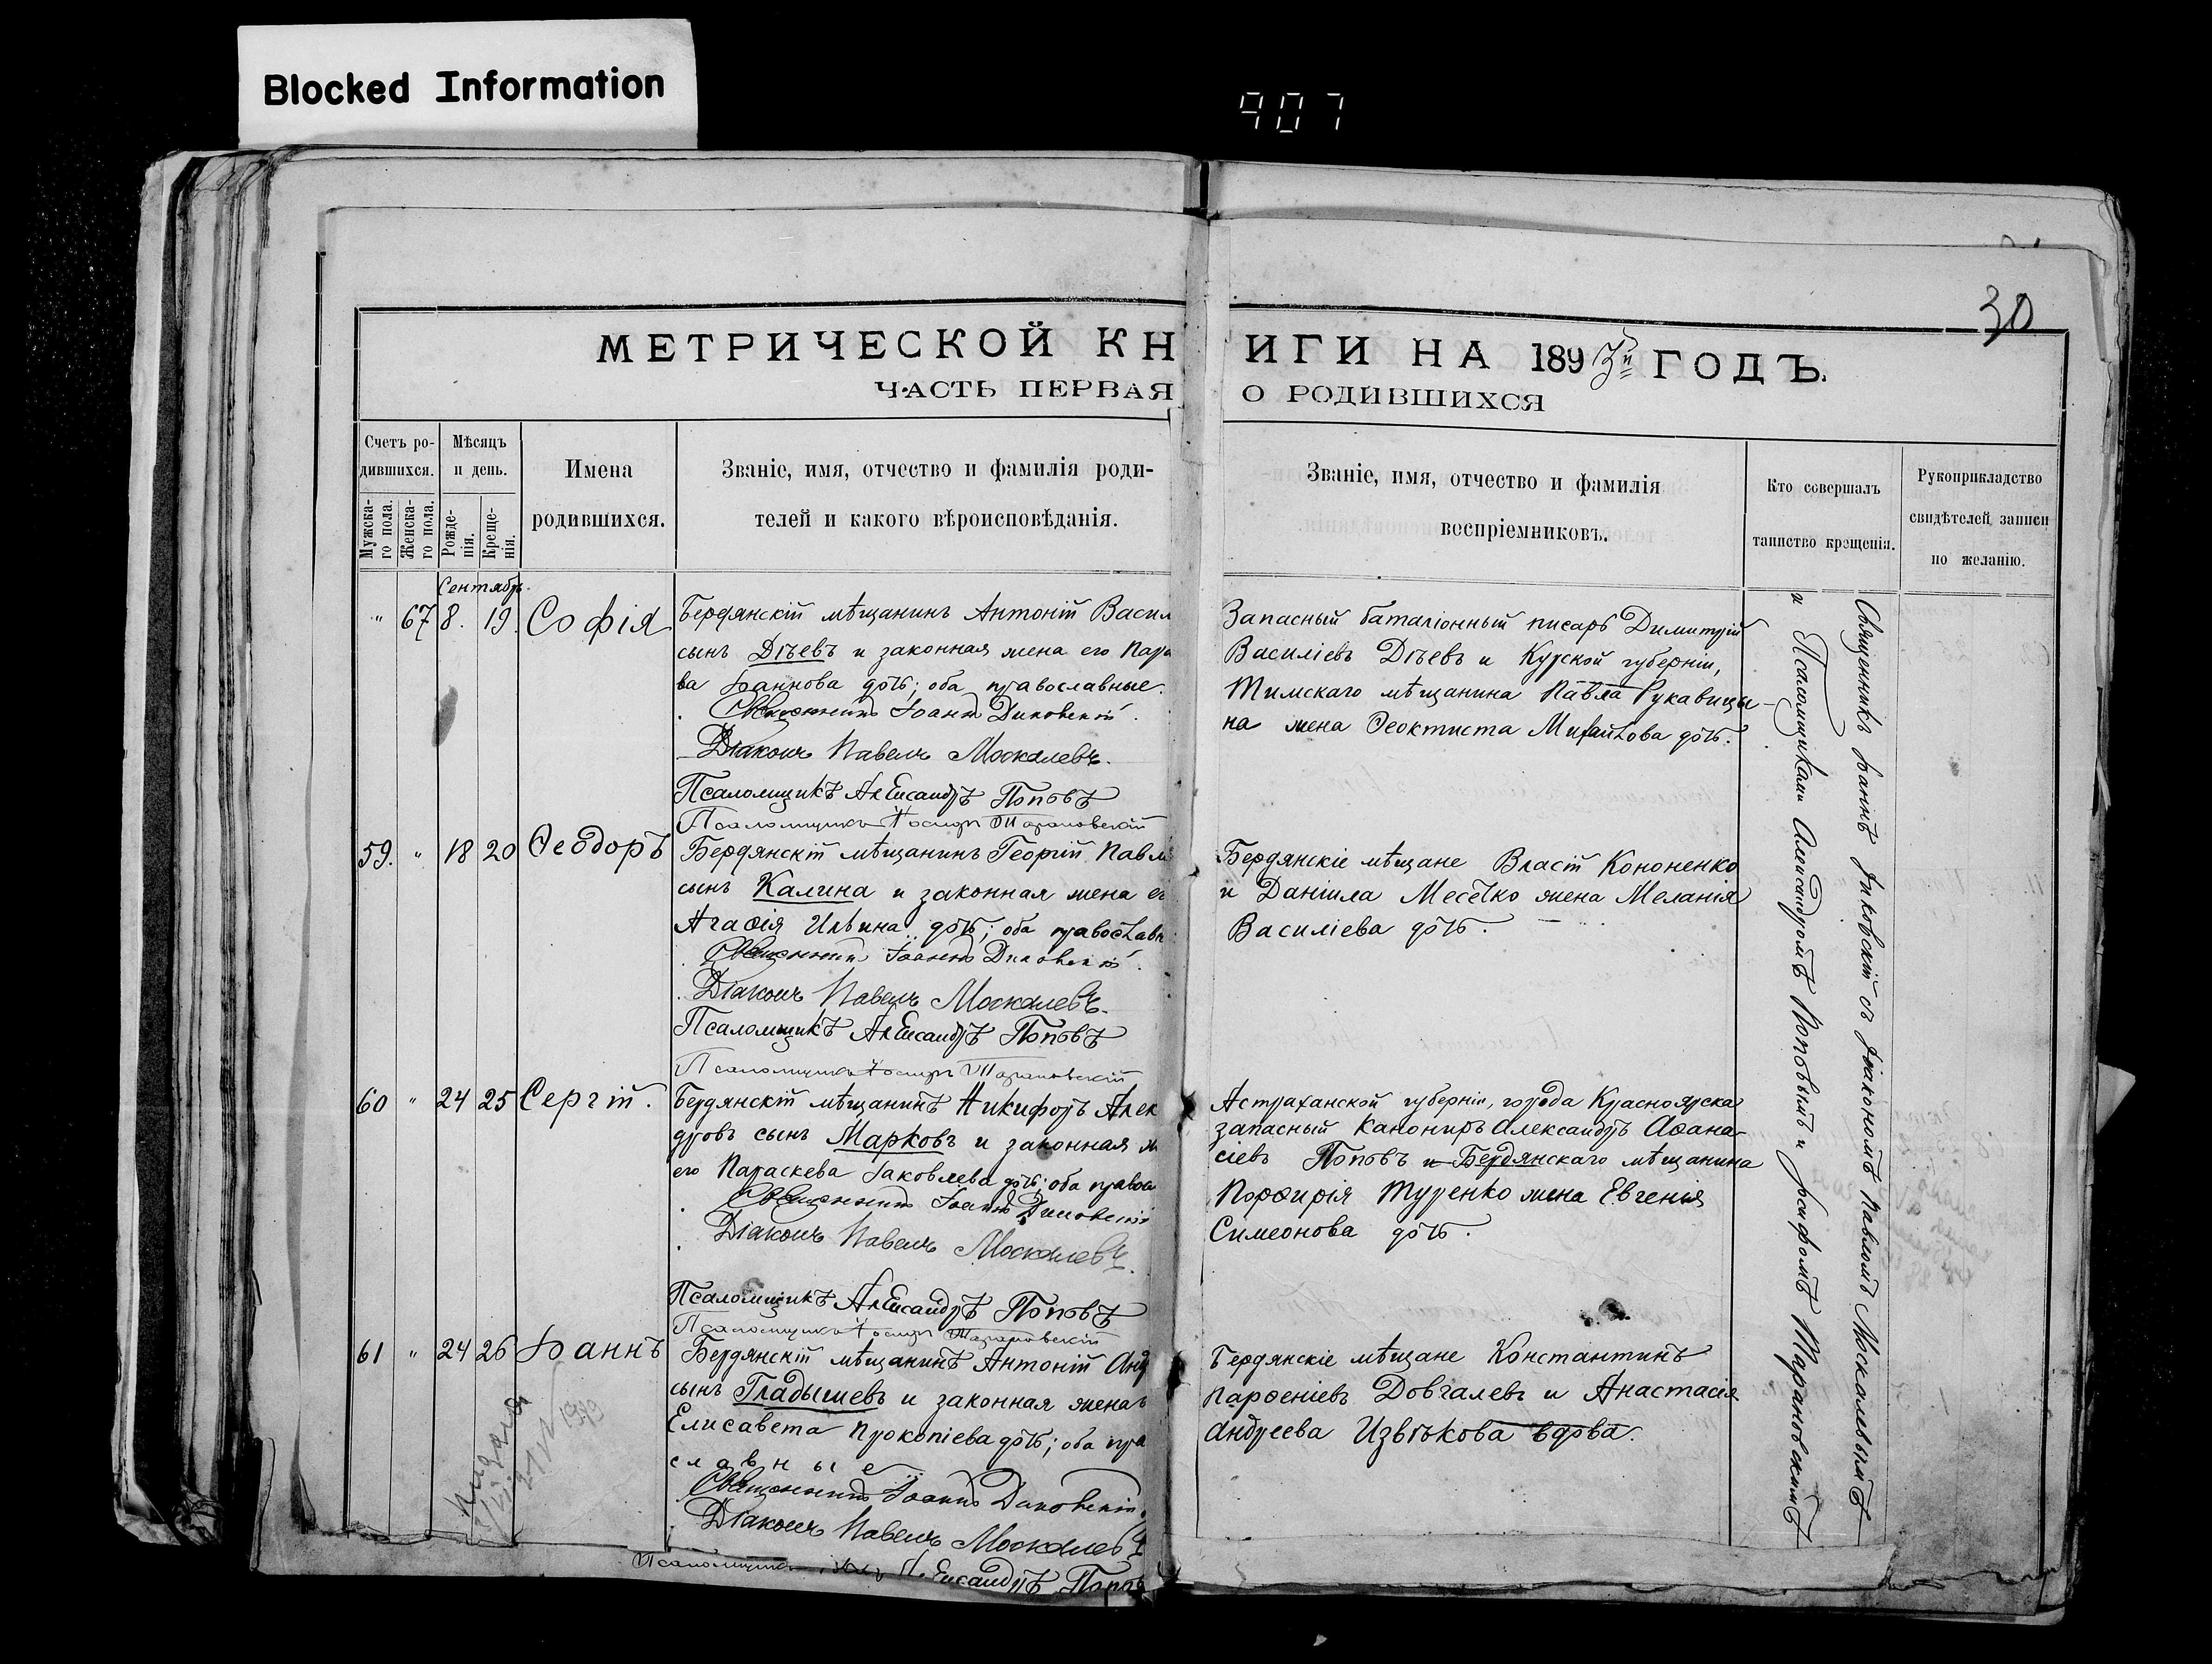 Blocked Information
907
30
МЕТРИЧЕСКОЙ КНИГИ НА 1893й ГОДЪ.
ЧАСТЬ ПЕРВАЯ О РОДИВШИХСЯ
Счетъ ро-
дившихся.
Мужска-
го пола.
Женска-
го пола.
Мѣсяцъ
и день.
Рожде-
нія.
Креще-
нія.
Имена
родившихся.
Званіе, имя, отчество и фамилія роди-
телей и какого вѣроисповѣданія.
Званіе, имя, отчество и фамилія
воспріемниковъ.
Кто совершалъ
таинство крещенія.
Рукоприкладство
свидѣтелей записи
по желанію.
Сентябрь.
" 67 8. 19. Софія
Бердянскій мѣщанинъ Антоній Васил
сынъ Дѣевъ и законная жена его Пара
ва Іоаннова доч.; оба православные.
Священникъ Іоаннъ Диковскій.
Діаконъ Павелъ Москалевъ.
Псаломщикъ Александръ Поповъ
Псаломщикъ Іосифъ Тарановскій
Запасный баталіонный писарь Димитрій
Василіевъ Дѣевъ и Курской губерніи,
Тимскаго мѣщанина Павла Рукавицы-
на жена Ѳеоктиста Михайлова доч.
59. " 18 20 Ѳеодоръ
Бердянскій мѣщанинъ Георгій Павл
сынъ Калина и законная жена ег
Агафія Ильина доч.; оба православн
Священникъ Іоаннъ Диковскій.
Діаконъ Павелъ Москалевъ.
Псаломщикъ Александръ Поповъ
Псаломщикъ Іосифъ Тарановскій
Бердянскіе мѣщане Власій Кононенко
и Даніила жена Меланія
Василіева доч.
60 " 24 25 Сергій.
Бердянскій мѣщанинъ Никифоръ Алек
дровъ сынъ Марковъ и законная ж
его Параскева Іаковлева доч.; оба правос
Священникъ Іоаннъ Диковскій
Діаконъ Павелъ Москалевъ.
Псаломщикъ Александръ Поповъ
Псаломщикъ Іосифъ Тарановскій
Астраханской губерніи, города Красноярска
запасный канониръ Александръ Аѳана-
сіевъ Поповъ и Бердянскаго мѣщанина
Порфирія Туренко жена Евгенія
Симеонова доч.
61 " 24 26 Іоаннъ
Бердянскій мѣщанинъ Антоній Анд
сынъ Гладышевъ и законная жена
Елисавета Прокопіева доч.; оба пра
славные
Священникъ Іоаннъ Диковскій.
Діаконъ Павелъ Москалевъ
Псаломщикъ Александръ Поповъ
Бердянскіе мѣщане Константинъ
Парѳеніевъ Довгалевъ и Анастасія
Андреева Извѣкова вдова.
Священникъ Іоаннъ Диковскій съ діакономъ Павломъ Москалевымъ
и Псаломщиками Александромъ Поповымъ и Іосифомъ Тарановскимъ